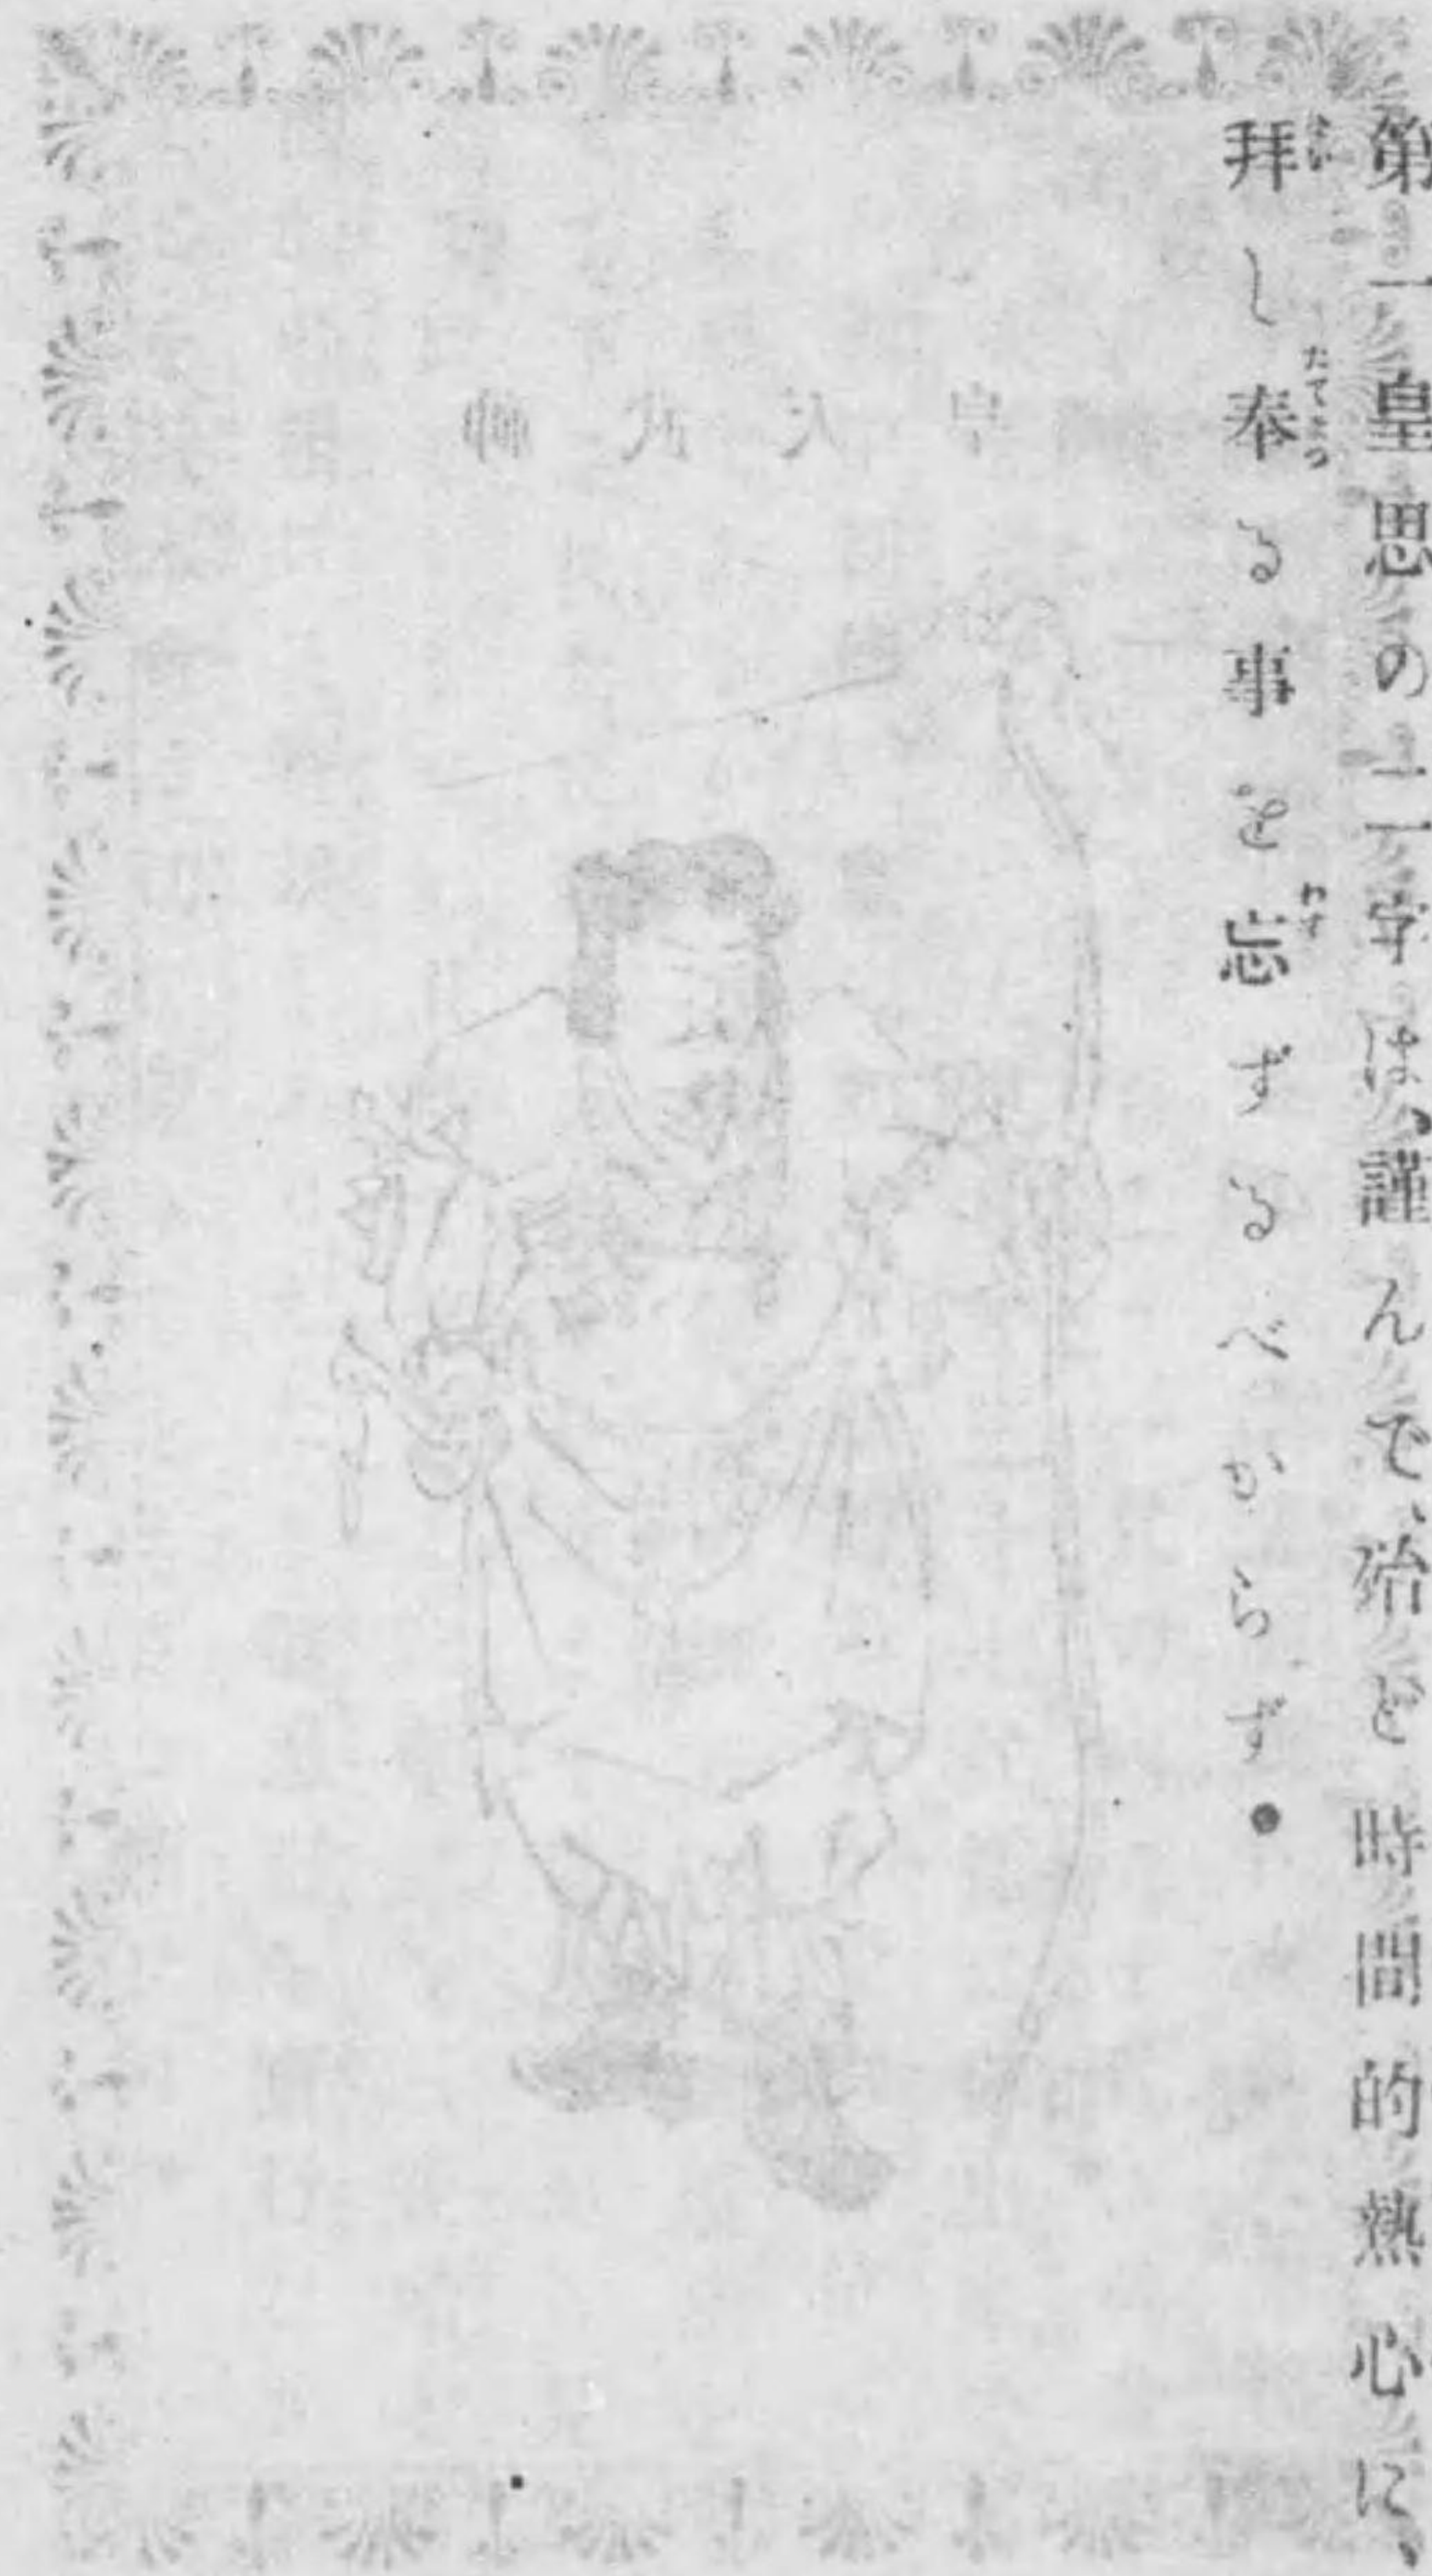 第一皇思の二字は、謹んで、殆ど時間的熱心に、
拜し奉る事を忘ずるべからず。